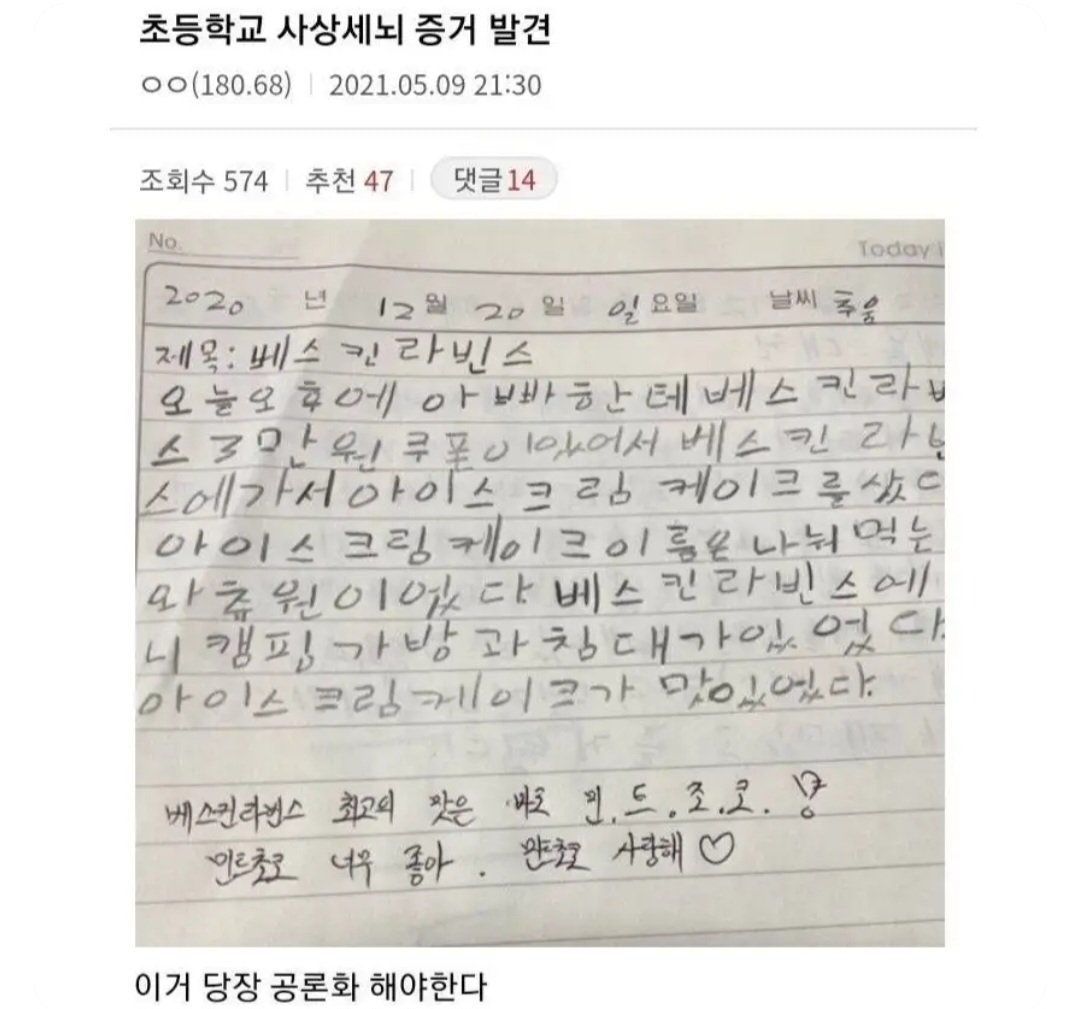 초등학교 사상세뇌 증거 발견
ㅇㅇ(180.68) 2021.05.09 21:30
조회수 574 추천 47 댓글 14
No. Today i
2020 년 12 월 20 일 일 요일 날씨 추움
제목: 베스킨라빈스
오늘오후에 아빠한테베스킨라
스 3만원쿠폰이있어서 베스킨라
스에가서아이스크림케이크를샀다
아이스크림케이크이름은나눠먹는
와츄원이었다 베스킨라빈스에
니캠핑가방과침대가있었다.
아이스크림케이크가 맛있었다.
베스킨라빈스 최고의 맛은 바로 민.트.초.코. !
민트초코 너무 좋아. 민트초코 사랑해♡
이거 당장 공론화 해야한다